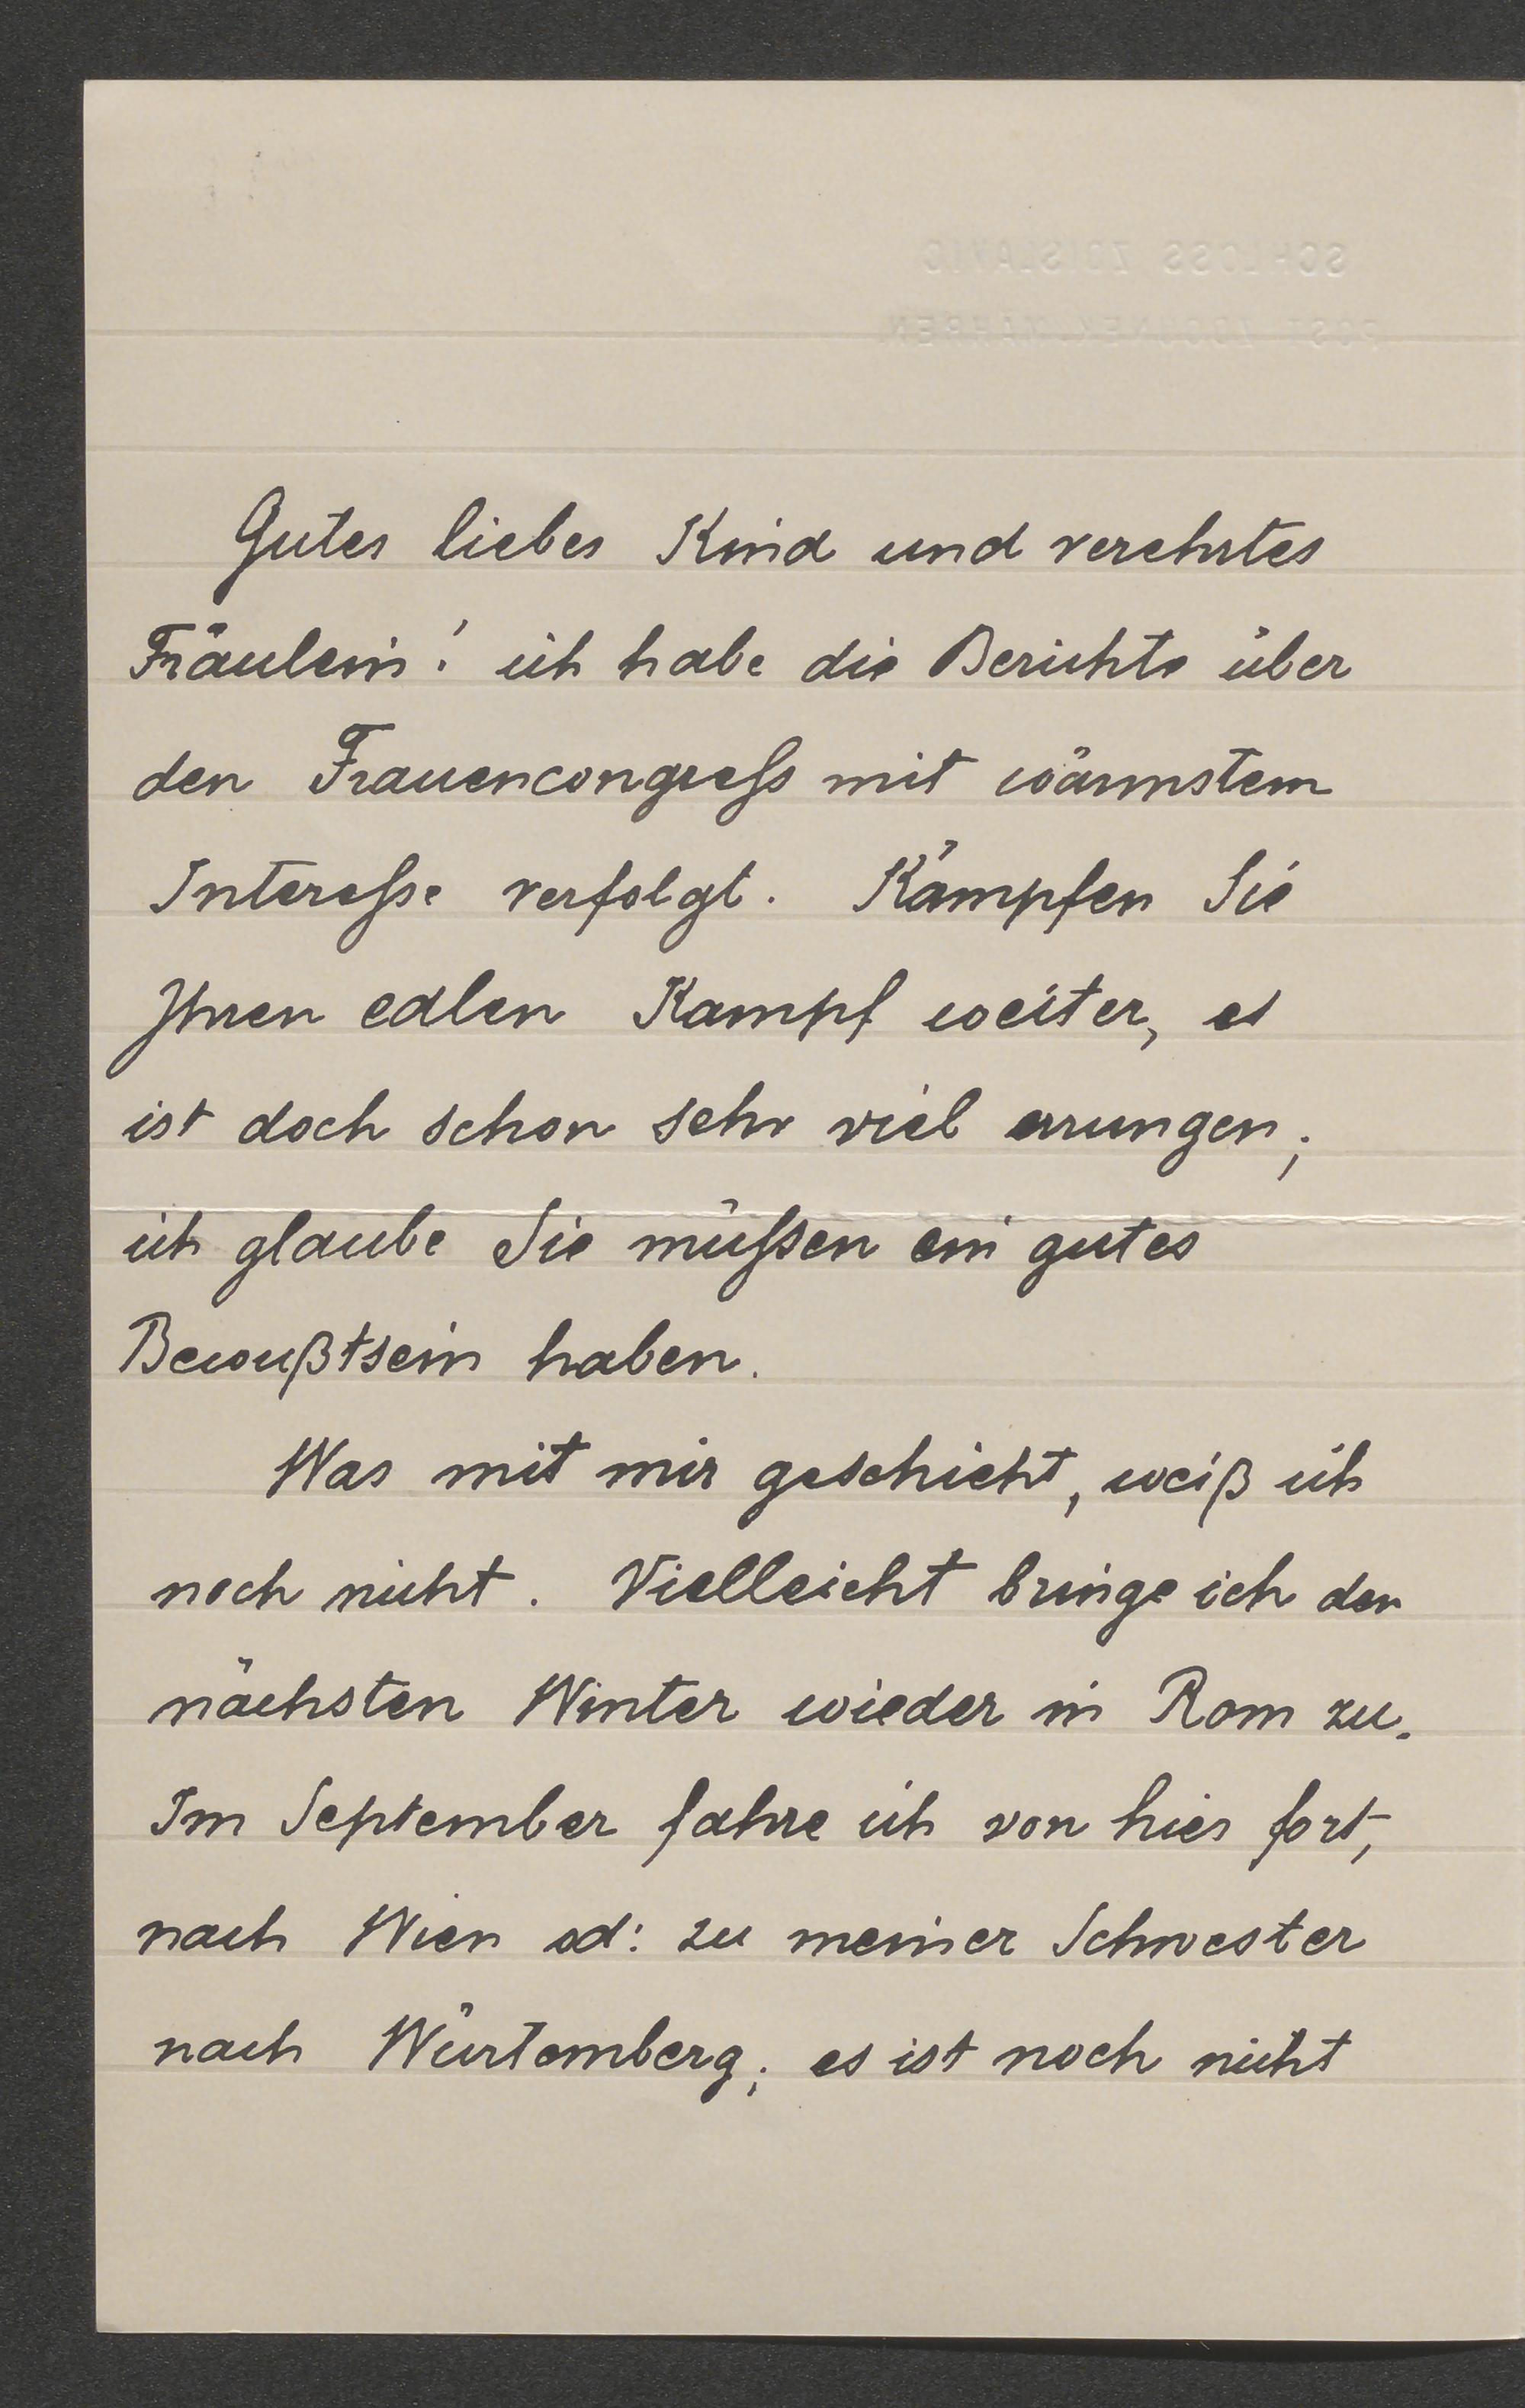 SCHLOSS ZDISLAVIC
POST ZDOUNEK MÄHREN
Gutes liebes Kind und verehrtes
Fräulein! ich habe die Berichte über
den Frauencongreſs mit wärmstem
Intereſse verfolgt. Kämpfen Sie
Ihren edlen Kampf weiter, es
ist doch schon sehr viel errungen;
ich glaube Sie müſsen ein gutes
Bewußtsein haben.
Was mit mir geschieht, weiß ich
noch nicht. Vielleicht bringe ich den
nächsten Winter wieder in Rom zu.
Im September fahre ich von hier fort,
nach Wien od: zu meiner Schwester
nach Würtemberg; es ist noch nicht